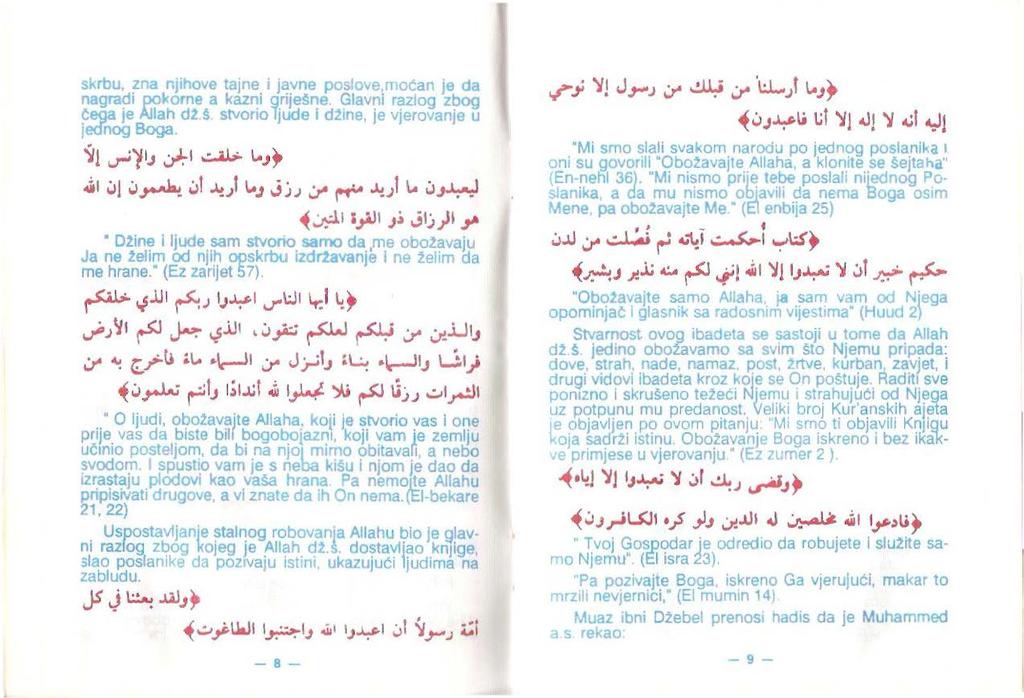 skrbu, zna njihove tajne i javne poslove,moćan je da
nagradi pokorne a kazni griješne. Glavni razlog zbog
čega je Allah dž.š. stvorio ljude i džine, je vjerovanje u
jednog Boga.
﴿وما خلقت الجن والإنس إلّا
ليعبدون ما أريد منهم من رزق وما أريد أن يطعمون إن الله
هو الرزاق ذو القوة المتين﴾
" Džine i ljude sam stvorio samo da me obožavaju
Ja ne želim od njih opskrbu izdržavanje i ne želim da
me hrane." (Ez zarijet 57).
﴿يا أيها الناس اعبدوا ربكم الذي خلقكم
والـذين من قبلكم لعلكم تتقون، الذي جعل لكم الأرض
فراشًـا والـسـماء بنـاءً وأنـزل من الـسـماء ماءً فأخرج به من
الثمرات رزقًا لكم فلا تجعلوا لله أندادًا وأنتم تعلمون﴾
" O ljudi, obožavajte Allaha, koji je stvorio vas i one
prije vas da biste bili bogobojazni, koji vam je zemlju
učinio posteljom, da bi na njoj mirno obitavali, a nebo
svodom. I spustio vam je s neba kišu i njom je dao da
izrastaju plodovi kao vaša hrana. Pa nemojte Allahu
pripisivati drugove, a vi znate da ih On nema.(El-bekare
21, 22)
Uspostavljanje stalnog robovanja Allahu bio je glav-
ni razlog zbog kojeg je Allah dž.š. dostavljao knjige,
slao poslanike da pozivaju istini, ukazujući ljudima na
zabludu.
﴿ولقد بعثنا في كل
أمّة رسولاً أن اعبدوا الله واجتنبوا الطاغوت﴾
— 8 —
﴿وما أرسلنا من قبلك من رسول إلا نوحي
إليه أنه لا إله إلا أنا فاعبدون﴾
"Mi smo slali svakom narodu po jednog poslanika i
oni su govorili "Obožavajte Allaha, a klonite se šejtana"
(En-nehl 36). "Mi nismo prije tebe poslali nijednog Po-
slanika, a da mu nismo objavili da nema Boga osim
Mene, pa obožavajte Me." (El enbija 25)
﴿كتاب أُحكمت آياته ثم فُصلت من لدن
حكيم خبير أن لا تعبدوا إلا الله إنني لكم منه نذير وبشير﴾
"Obožavajte samo Allaha, ja sam vam od Njega
opominjač i glasnik sa radosnim vijestima" (Huud 2)
Stvarnost ovog ibadeta se sastoji u tome da Allah
dž.š. jedino obožavamo sa svim što Njemu pripada:
dove, strah, nade, namaz, post, žrtve, kurban, zavjet, i
drugi vidovi ibadeta kroz koje se On poštuje. Raditi sve
ponizno i skrušeno težeći Njemu i strahujući od Njega
uz potpunu mu predanost. Veliki broj Kur'anskih ajeta
je objavljen po ovom pitanju: "Mi smo ti objavili Knjigu
koja sadrži istinu. Obožavanje Boga iskreno i bez ikak-
ve primjese u vjerovanju." (Ez zumer 2 ).
﴿وقضى ربك أن لا تعبدوا إلا إياه﴾
﴿فادعوا الله مخلصين له الدين ولو كره الكافـرون﴾
" Tvoj Gospodar je odredio da robujete i služite sa-
mo Njemu". (El isra 23).
"Pa pozivajte Boga, iskreno Ga vjerujući, makar to
mrzili nevjernici," (El mumin 14).
Muaz ibni Džebel prenosi hadis da je Muhammed
a.s. rekao:
— 9 —